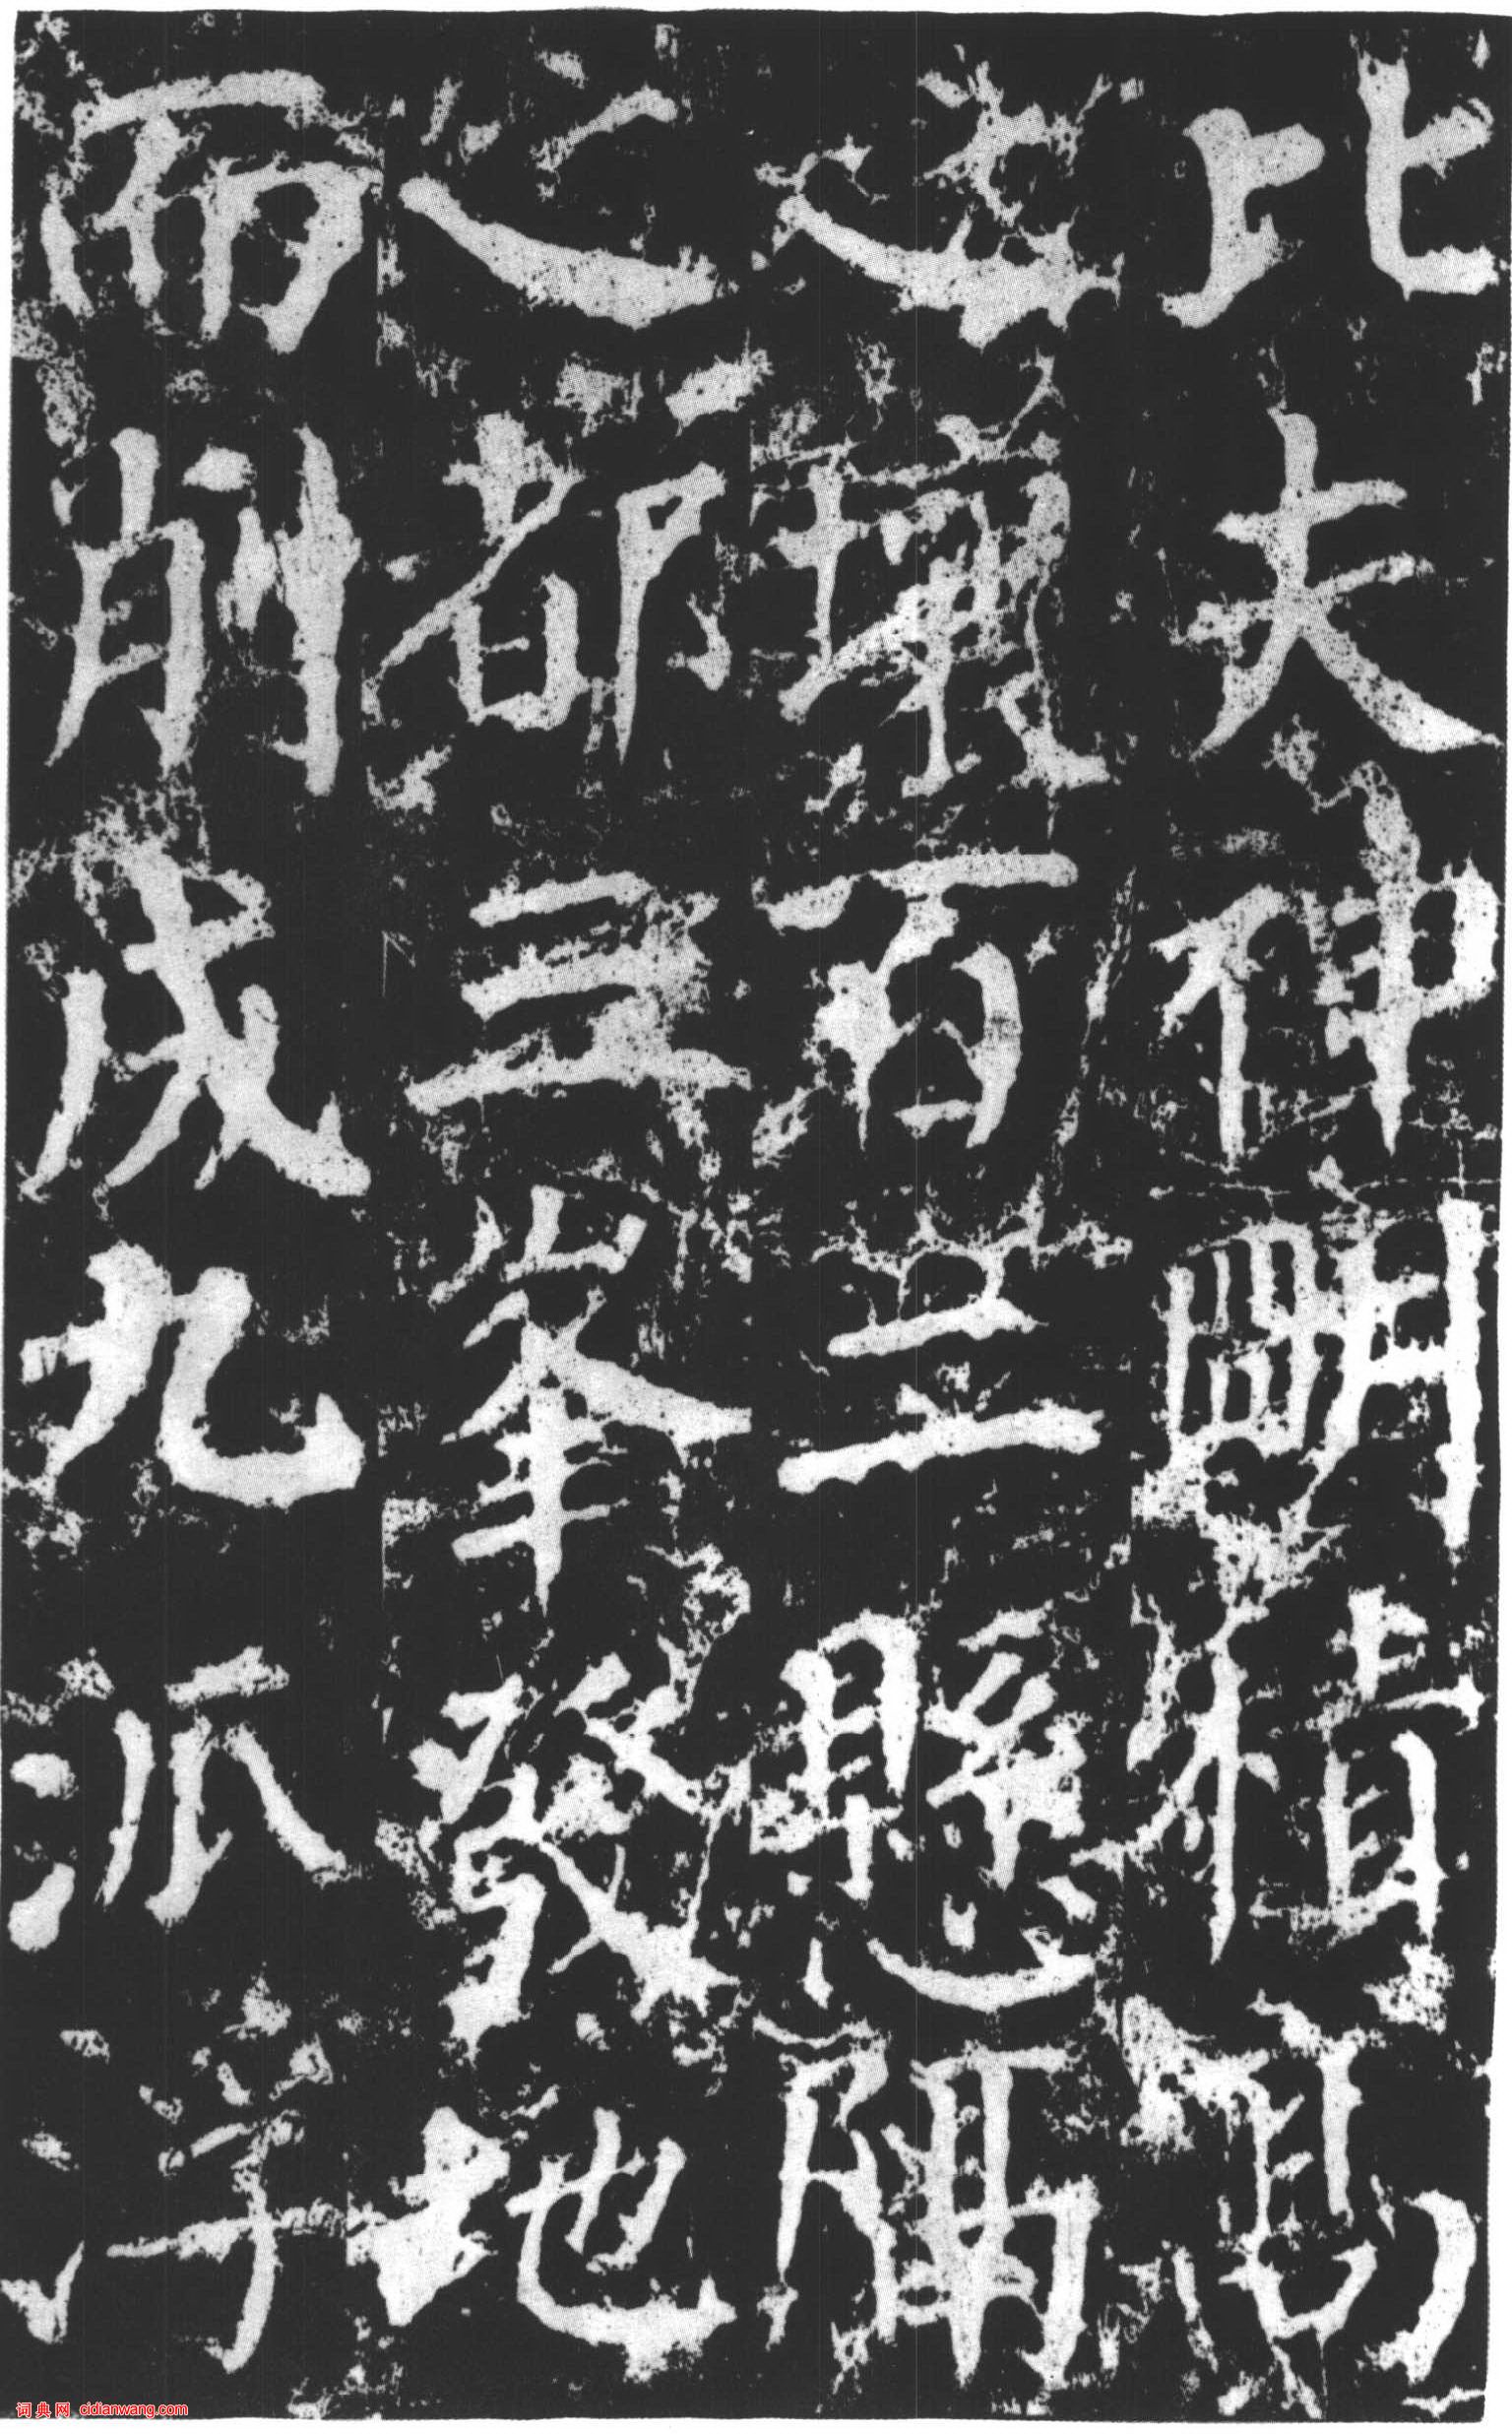 比夫神明積高
之壤百二懸隔
之都三峯發地
而削成九派浮
词典网 cidianwang.com